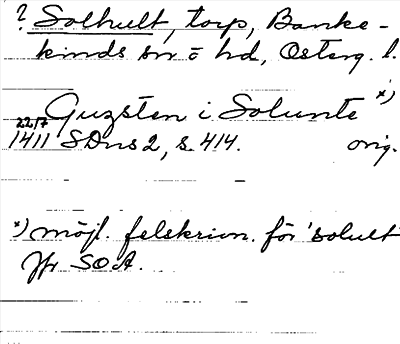 ? Solhult, torp, Banke-
kinds sn o hd, Österg. l.
Guzsten i Solunte x)
22/7
1411 SDns 2, s. 414. orig.
x) möjl. felskrivn. för 'solult'
Jfr SOÄ.